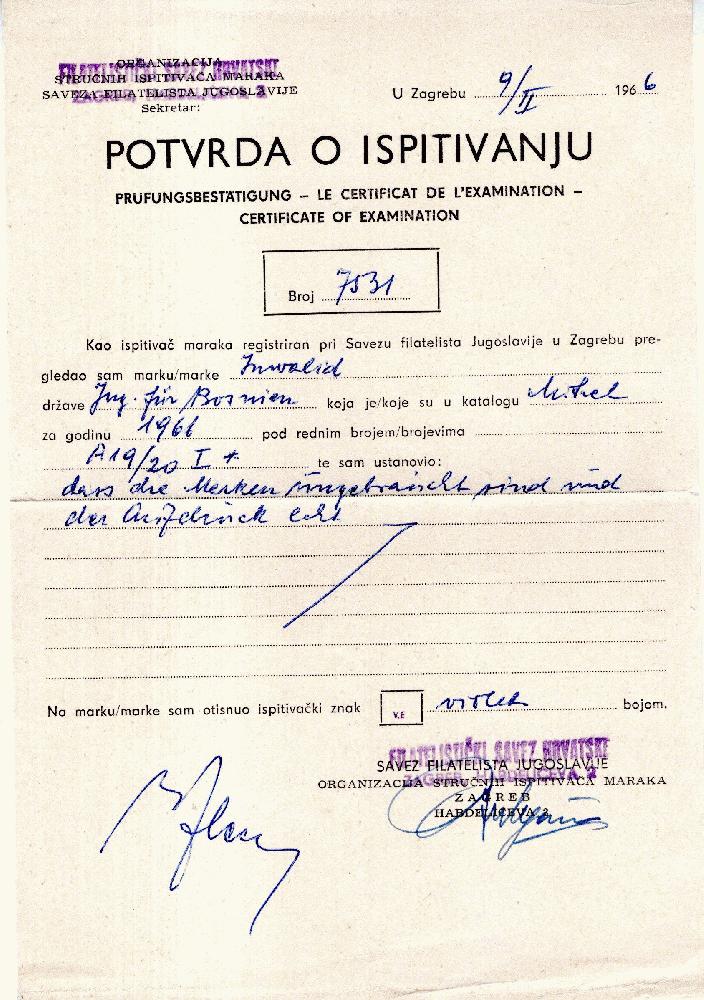 FILATELISTIČKI SAVEZ HRVATSKE
ORGANIZACIJA
STRUČNIH ISPITIVAČA MARAKA
SAVEZA FILATELISTA JUGOSLAVIJE
Sekretar:
U Zagrebu 9/II 1966
POTVRDA O ISPITIVANJU
PRUFUNGSBESTÄTIGUNG – LE CERTIFICAT DE L'EXAMINATION –
CERTIFICATE OF EXAMINATION
Broj 7531
Kao ispitivač maraka registriran pri Savezu filatelista Jugoslavije u Zagrebu pre-
gledao sam marku/marke Invalid
države Jug. für Bosnien koja je/koje su u katalogu Michel
za godinu 1966 pod rednim brojem/brojevima
A19/20 I *
te sam ustanovio:
dass die Marken ungebraucht sind und
der Aufdruck echt
Na marku/marke sam otisnuo ispitivački znak V.E violett bojom.
FILATELISTIČKI SAVEZ HRVATSKE
SAVEZ FILATELISTA JUGOSLAVIJE
ZAGREB, HABDELIĆEVA 2
ORGANIZACIJA STRUČNIH ISPITIVAČA MARAKA
ZAGREB
HABDELIĆEVA 2